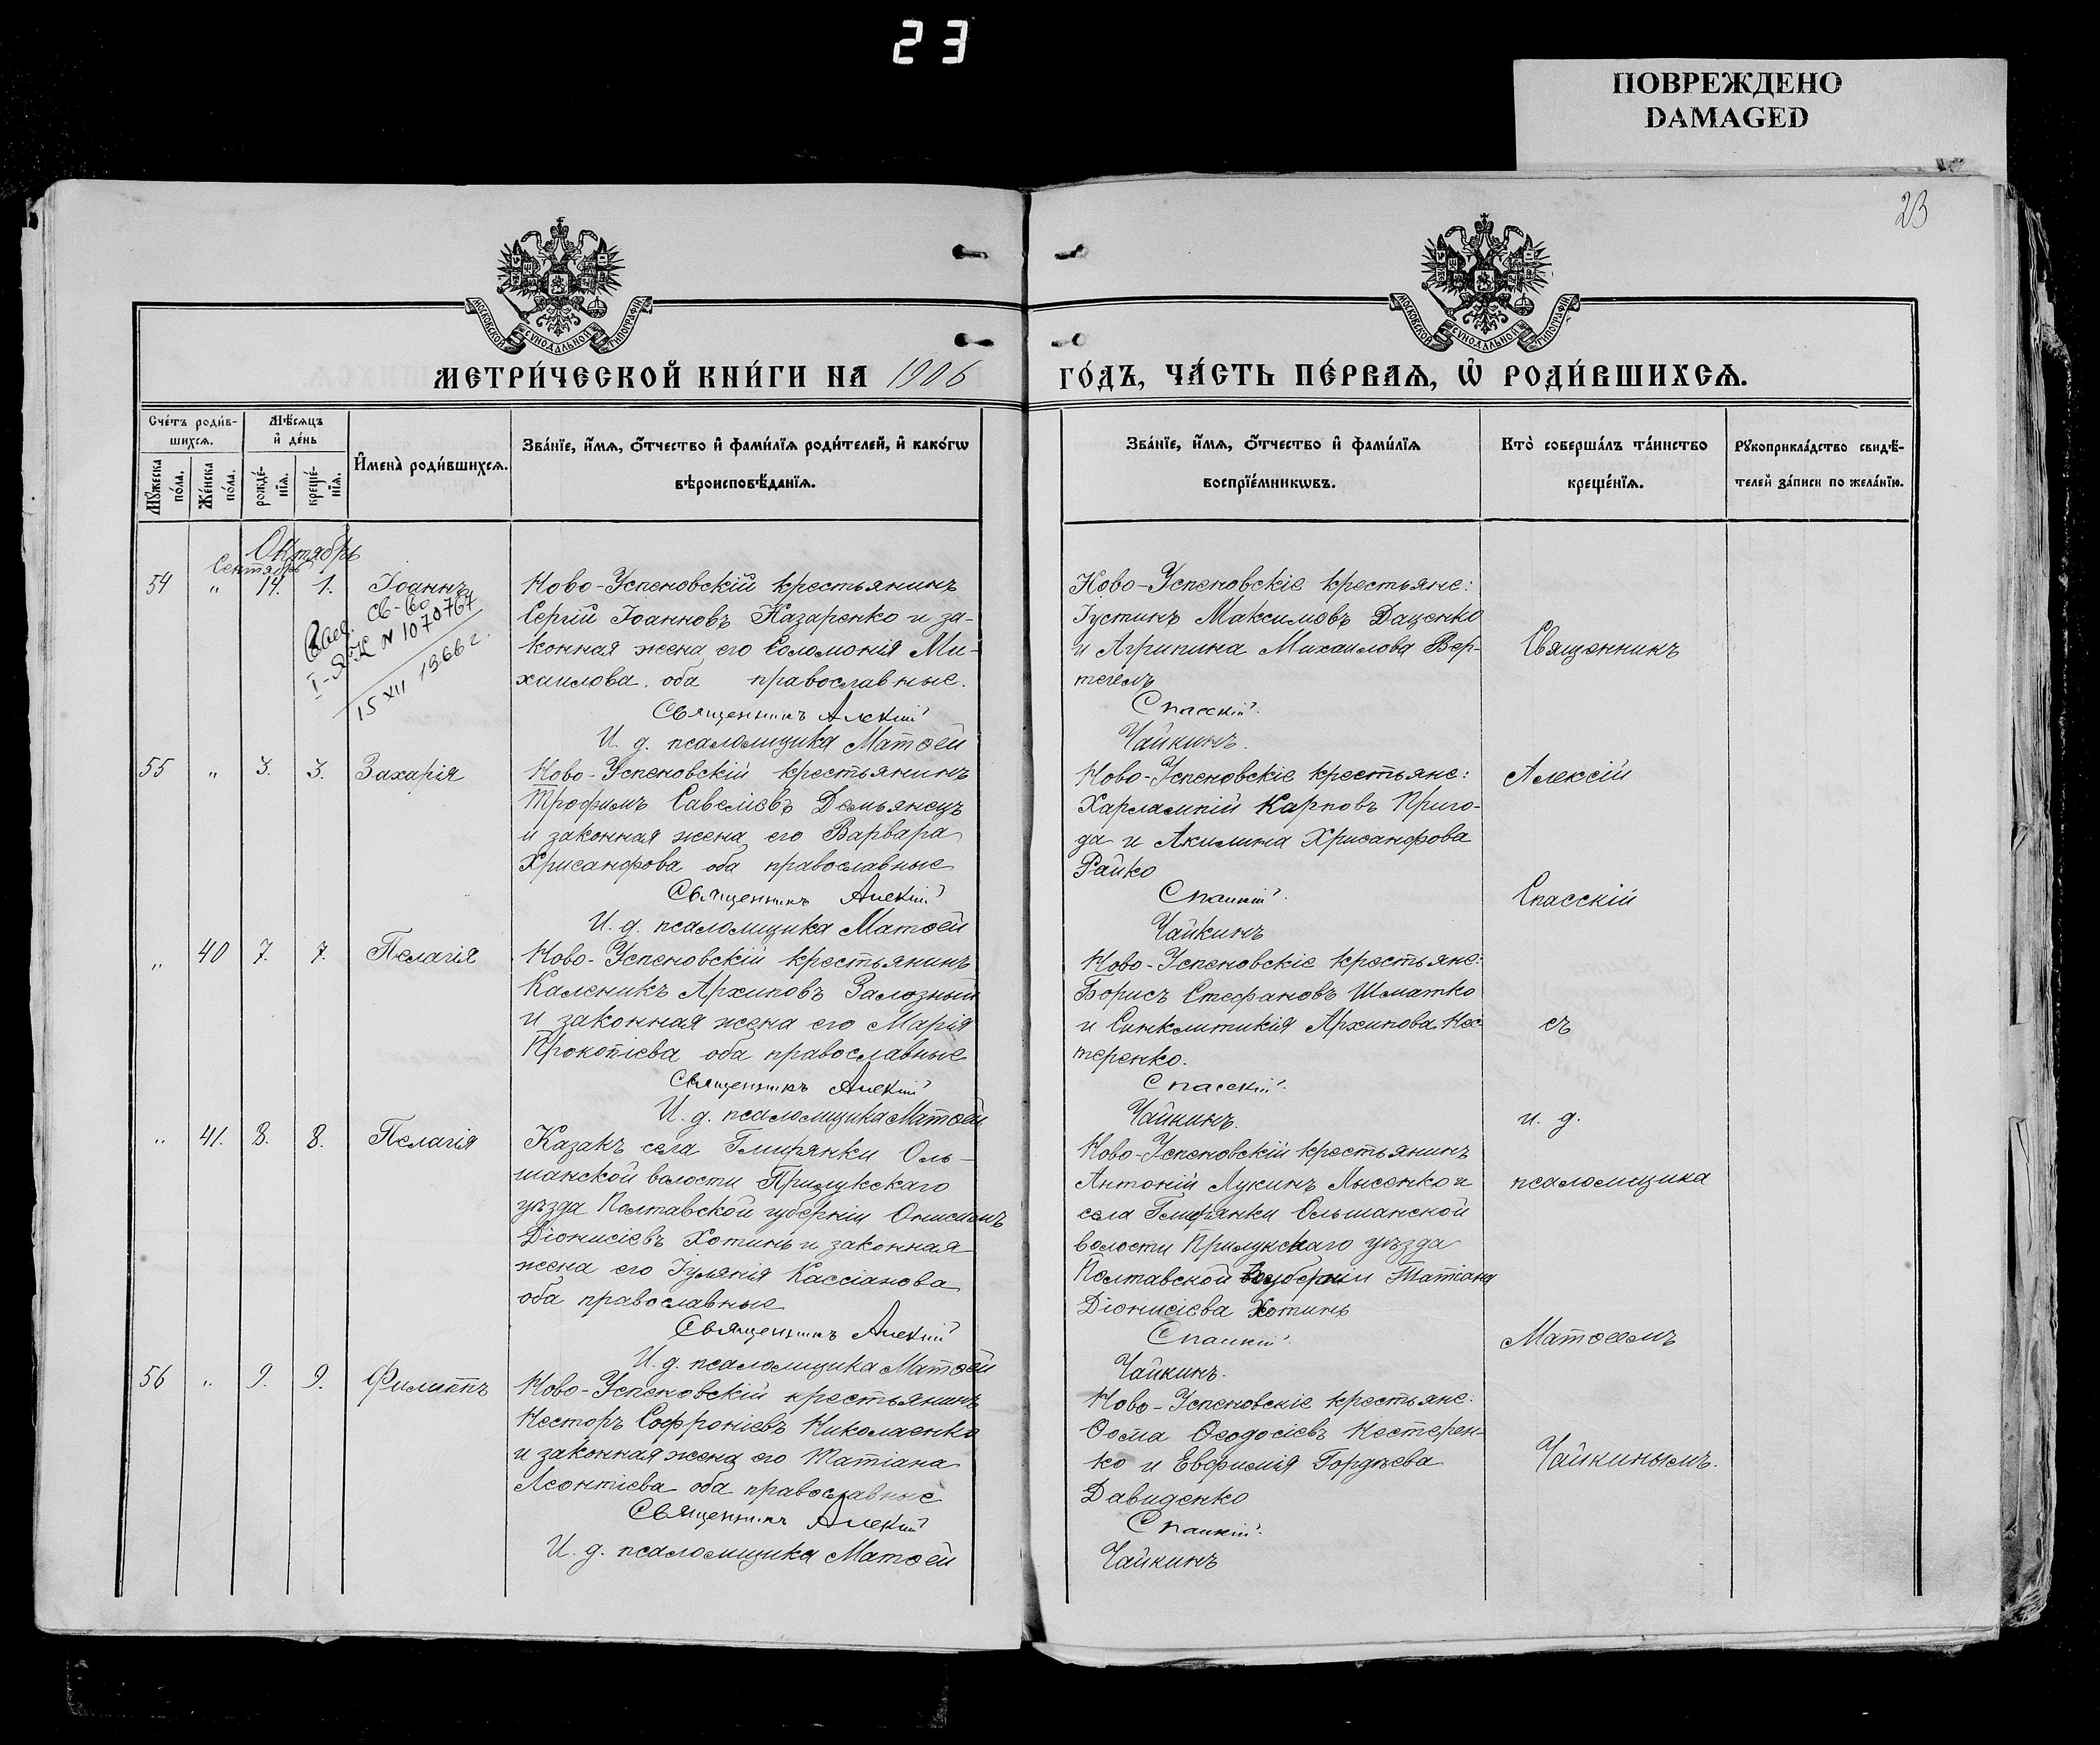 23
ПОВРЕЖДЕНО
DAMAGED
23
МОСКОВСКОЙ СѴНОДАЛЬНОЙ ТИПОГРАФІИ
МОСКОВСКОЙ СѴНОДАЛЬНОЙ ТИПОГРАФІИ
МЕТРИ́ЧЕСКОЙ КНИ́ГИ НА 1906
ГО́ДЪ, ЧА́СТЬ ПЕ́РВАѦ, Ѡ҆ РОДИ́ВШИХСѦ.
Сче́тъ роди́в-
шихсѧ.
Мѣ́сѧцъ
и҆ де́нь
Мꙋ́жеска
по́ла.
Же́нска
по́ла.
рожде́-
нїѧ.
креще́-
нїѧ.
И҆мена̀ роди́вшихсѧ.
Зва́нїе, и҆́мѧ, ѻ҆́тчество и҆ фами́лїѧ роди́телей, и҆ како́гѡ
вѣроисповѣ́данїѧ.
Зва́нїе, и҆́мѧ, ѻ҆́тчество и҆ фами́лїѧ
воспрїе́мникѡвъ.
Кто̀ соверша́лъ та́инство
креще́нїѧ.
Рꙋкоприкла́дство свидѣ́-
телей за́писи по жела́нїю.
Октябрь
Сентябрь
54 " 14. 1. Іоаннъ
св-во
I-ЯК N 1070767
15 XII 1966 г.
Ново-Успеновскій крестьянинъ
Сергій Іоанновъ Назаренко и за-
конная жена его Соломонія Ми-
хаилова. оба православные.
Священникъ Алексій
И. д. псаломщика Матѳей
Ново-Успеновскіе крестьяне:
Іустинъ Максимовъ Даценко
и Агрипина Михаилова Вер-
тегелъ
Спасскій.
Чайкинъ.
Священникъ
55 " 3. 3. Захарія
Ново-Успеновскій крестьянинъ
Трофимъ Савеліевъ Демьянецъ
и законная жена его Варвара
Хрисанфова оба православные
Священникъ Алексій
И. д. псаломщика Матѳей
Ново-Успеновскіе крестьяне:
Харлампій Карповъ Приго-
да и Акилина Хрисанфова
Райко
Спасскій.
Чайкинъ
Алексій
Спасскій
" 40 7. 7. Пелагія
Ново-Успеновскій крестьянинъ
Каленикъ Архиповъ Залозный
и законная жена его Марія
Прокопіева оба православные
Священникъ Алексій
И. д. псаломщика Матѳей
Ново-Успеновскіе крестьяне:
Борисъ Стефановъ Шматко
и Синклитикія Архипова Нес-
теренко.
Спасскій.
Чайкинъ.
съ
и. д.
" 41. 8. 8. Пелагія
Казакъ села Гмирянки Оль-
шанской волости Прилукскаго
уѣзда Полтавской губерніи Онисимъ
Діонисіевъ Хотинь и законная
жена его Іуліянія Кассіанова
оба православные
Священникъ Алексій
И. д. псаломщика Матѳей
Ново-Успеновскій крестьянинъ
Антоній Лукинъ Лысенко и
села Гмирянки Ольшанской
волости Прилукскаго уѣзда
Полтавской губерніи Татіана
Діонисіева Хотинь
Спасскій.
Чайкинъ.
псаломщика
Матѳеемъ
56 " 9. 9. Филиппъ
Ново-Успеновскій крестьянинъ
Несторъ Софроніевъ Николаенко
и законная жена его Татіана
Леонтіева оба православные
Священникъ Алексій
И. д. псаломщика Матѳей
Ново-Успеновскіе крестьяне:
Ѳома Ѳеодосіевъ Нестерен-
ко и Евфимія Гордѣева
Давиденко
Спасскій.
Чайкинъ
Чайкинымъ.